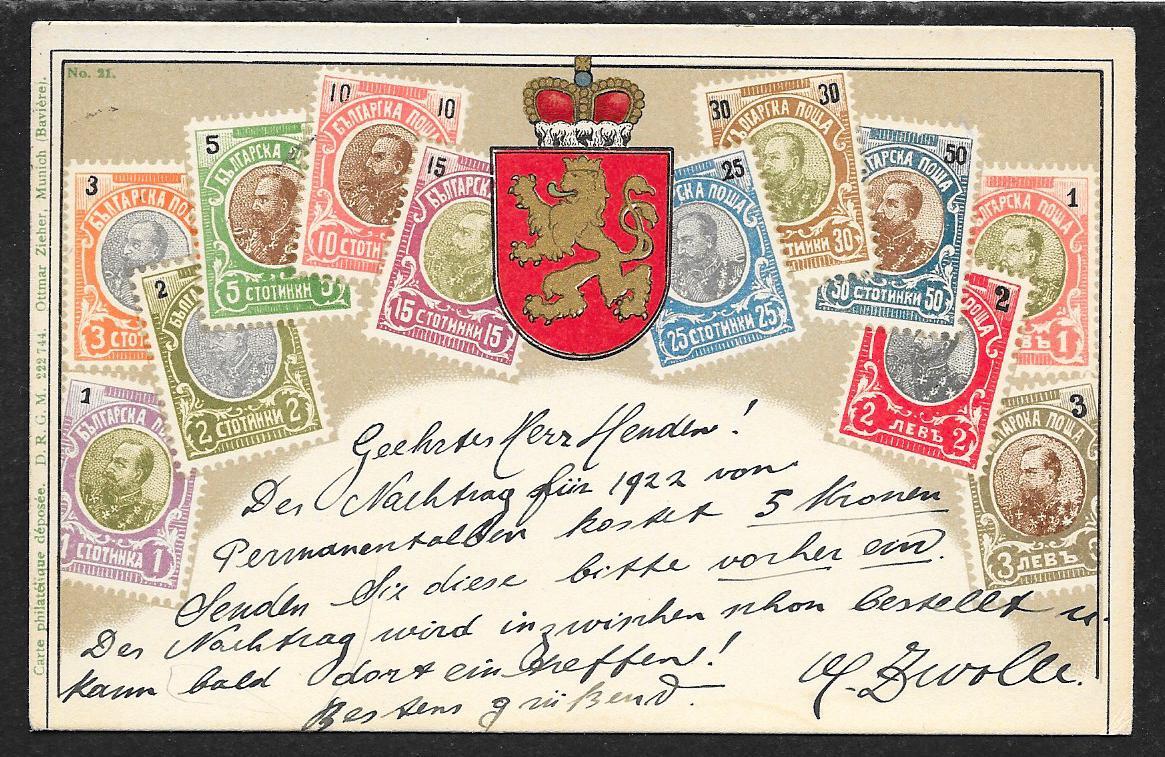 No. 21.
Carte philatélique déposée. D. R. G. M. 222744. Ottmar Zieher, Munich (Bavière).
3
БЪЛГАРСКА ПО
3 СТОТ
2
БЪЛГ
2 СТОТИНКИ 2
1
БЪЛГАРСКА ПО
1 СТОТИНКА 1
5
БЪЛГАРСКА
5 СТОТИНКИ 5
10 10
БЪЛГАРСКА ПОЩА
10 СТОТИ
15
БЪЛГАРСК
15 СТОТИНКИ 15
25
СКА ПОЩА
25 СТОТИНКИ 25
30 30
БЪЛГАРСКА ПОЩА
ТИНКИ 30
50
БЪЛГАРСКА ПОЩА
50 СТОТИНКИ 50
1
БЪЛГАРСКА ПОЩА
ВЪ 1
2
ПОЩА
2 ЛЕВЪ 2
3
ПОЩА
3 ЛЕВЪ
Geehrter Herr Henden!
Der Nachtrag für 1922 von
Permanentalben kostet 5 Kronen
Senden Sie diese bitte vorher ein.
Der Nachtrag wird inzwischen schon bestellt u.
kann bald dort eintreffen!
Bestens grüßend.
Zwolle.